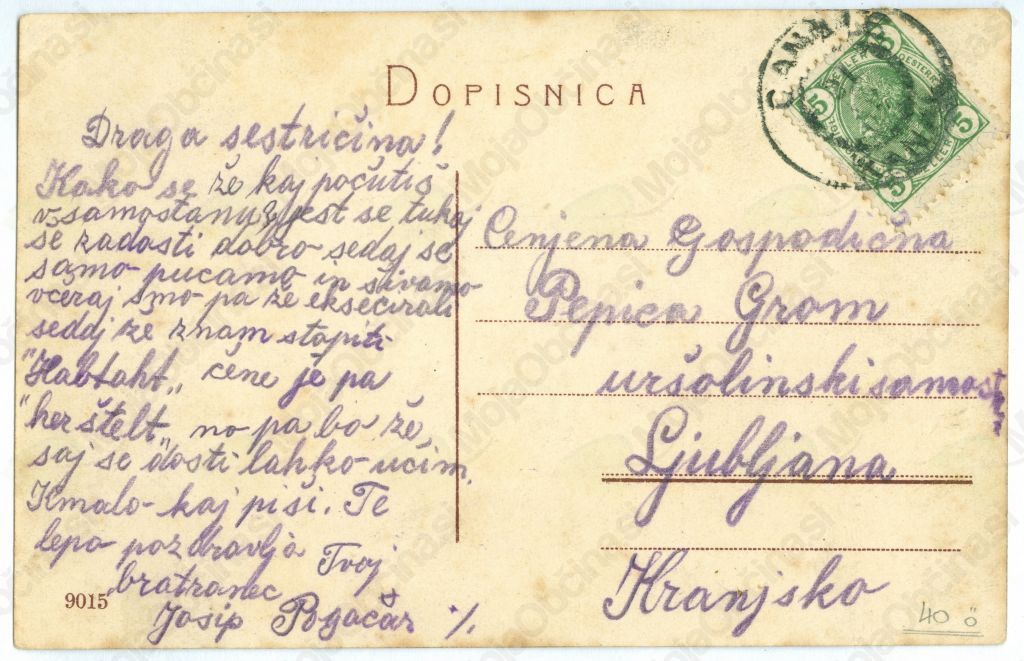 DOPISNICA
Draga sestričina!
Kako se že kaj počutiš
v samostanu? jest se tukaj
se zadosti dobro sedaj se
samo pucamo in šivamo
včeraj smo pa že eksecirali
sedaj že znam stopiti
"Habtaht„ čene je pa
"her štelt„ no pa bo že,
saj se dosti lahko učim.
Kmalo kaj piši. Te
lepo pozdravlja
Tvoj
bratranec
Josip Pogačar
9015
Cenjena Gospodična
Pepica Grom
uršolinski samostan
Ljubljana
Kranjsko
40
5
5
5
5
MojaObčina.si